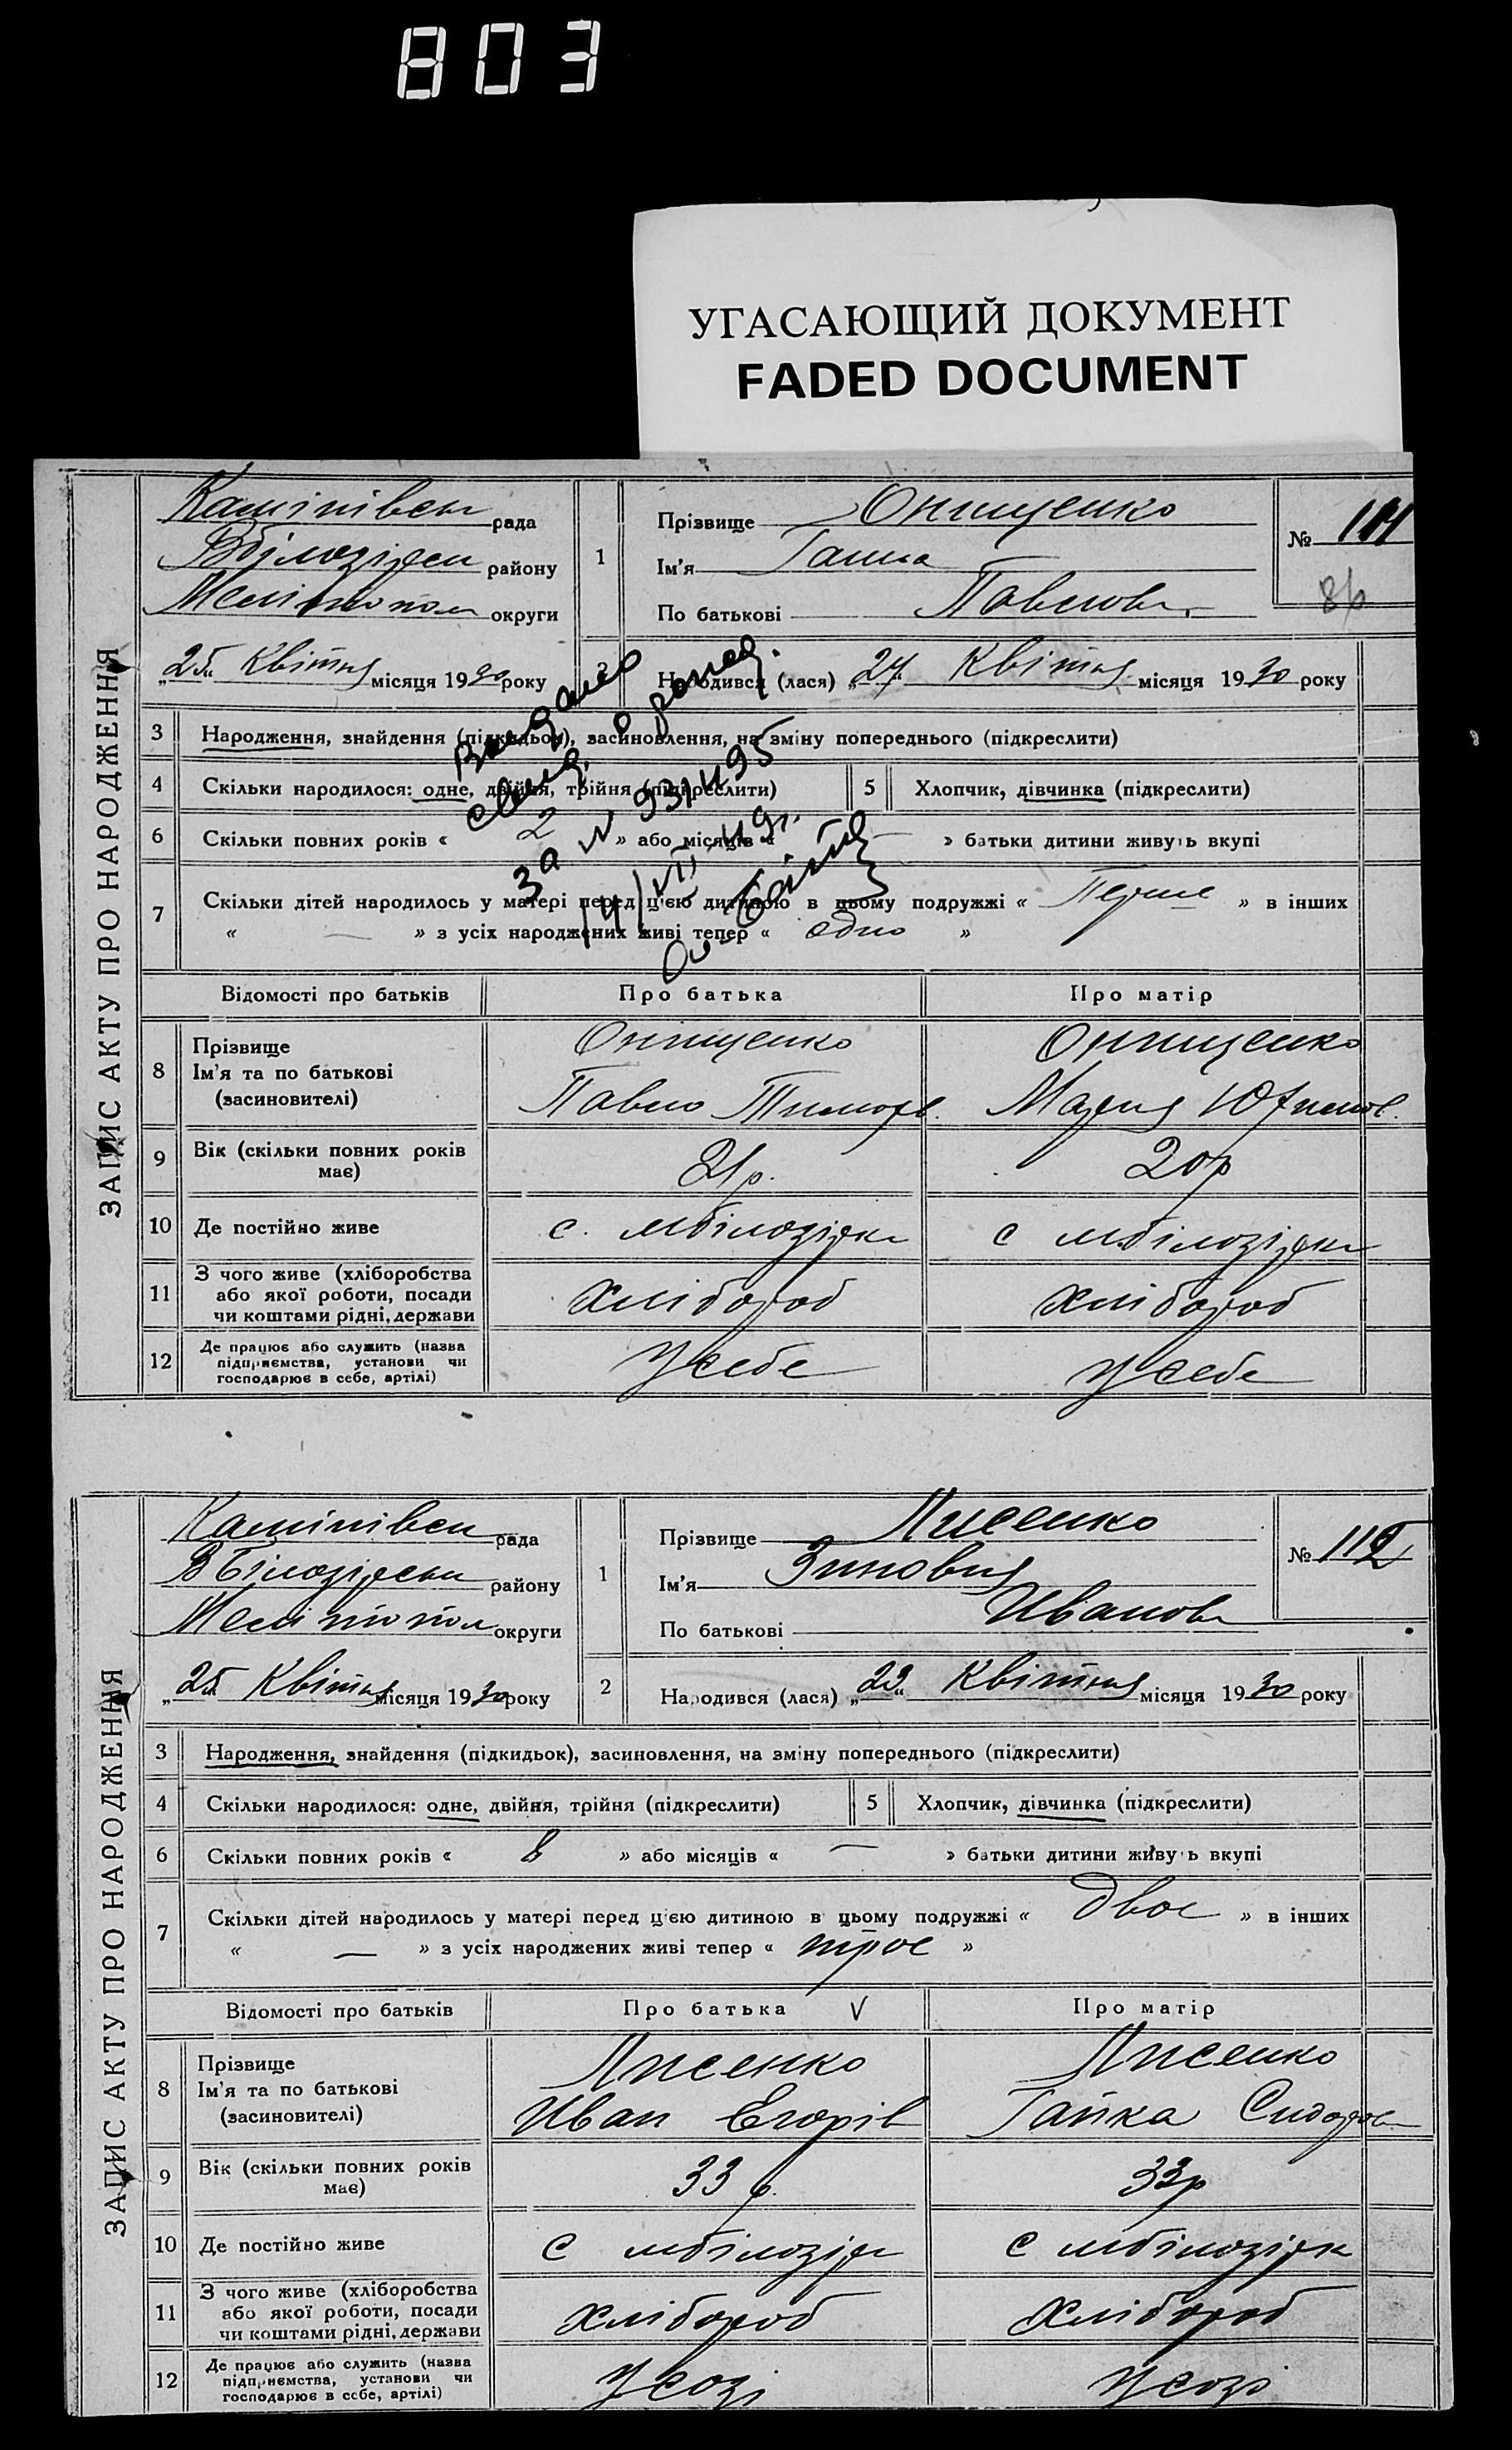 803
УГАСАЮЩИЙ ДОКУМЕНТ
FADED DOCUMENT
ЗАПИС АКТУ ПРО НАРОДЖЕННЯ
рада
району
Мелітопол округи
„25“ Квітня місяця 1930 року
1
Прізвище Онищенко
Ім'я Ганна
По батькові Павлов.
№ 111
86
2 Народився (лася) „24“ Квітня місяця 1930 року
3 Народження, знайдення (підкидьок), засиновлення, на зміну попереднього (підкреслити)
4 Скільки народилося: одне, двійня, трійня (підкреслити) 5 Хлопчик, дівчинка (підкреслити)
6 Скільки повних років « 2 » або місяців « — » батьки дитини живуть вкупі
7 Скільки дітей народилось у матері перед цією дитиною в цьому подружжі « Перше » в інших
« — » з усіх народжених живі тепер « одно »
о рожд.
за N 931495
Відомості про батьків Про батька Про матір
8 Прізвище Ім'я та по батькові (засиновителі)
Онищенко Онищенко
Павло Тимоф. Мария Юхимов.
9 Вік (скільки повних років має) 21р. 20р
10 Де постійно живе с. мбілозірка с мбілозірка
11 З чого живе (хліборобства або якої роботи, посади чи коштами рідні, держави хлібороб хлібороб
12 Де працює або служить (назва підприємства, установи чи господарює в себе, артілі) У себе У себе
ЗАПИС АКТУ ПРО НАРОДЖЕННЯ
рада
ВБілозірськ району
Мелітопол округи
„25“ Квітня місяця 1930 року
1
Прізвище Лисенко
Ім'я Зиновия
По батькові Иванов
№ 112
2 Народився (лася) „22“ Квітня місяця 1930 року
3 Народження, знайдення (підкидьок), засиновлення, на зміну попереднього (підкреслити)
4 Скільки народилося: одне, двійня, трійня (підкреслити) 5 Хлопчик, дівчинка (підкреслити)
6 Скільки повних років « 8 » або місяців « — » батьки дитини живуть вкупі
7 Скільки дітей народилось у матері перед цією дитиною в цьому подружжі « двое » в інших
« — » з усіх народжених живі тепер « трое »
Відомості про батьків Про батька V Про матір
8 Прізвище Ім'я та по батькові (засиновителі)
Лисенко Лисенко
Иван Егорів Ганка Сидоров
9 Вік (скільки повних років має) 33 р. 33р
10 Де постійно живе с мбілозірк с мбілозірк
11 З чого живе (хліборобства або якої роботи, посади чи коштами рідні, держави хлібороб хлібороб
12 Де працює або служить (назва підприємства, установи чи господарює в себе, артілі) У созі У созі